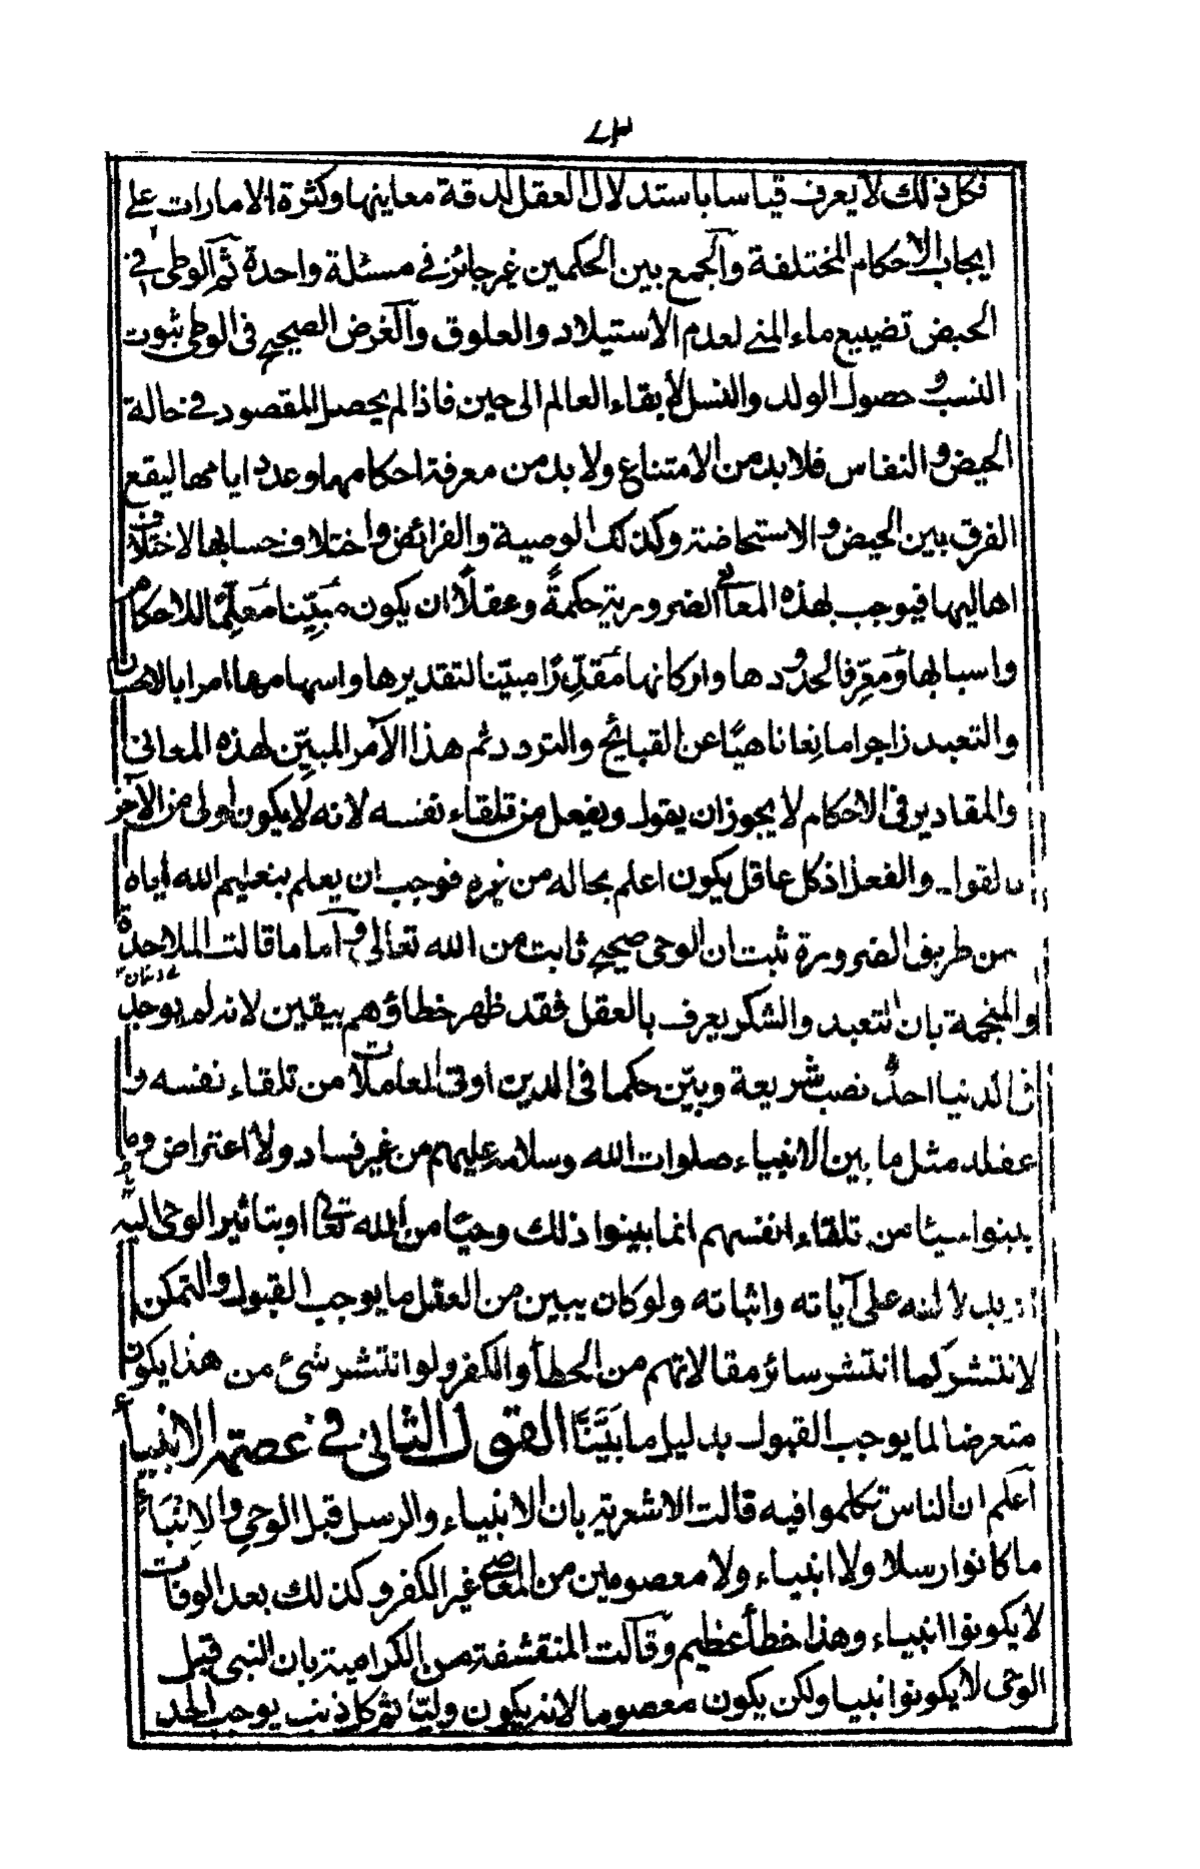 ٧٣
فكل ذلك لا يعرف قياسا باستدلال العقل لدقة معاينها وكثرة الامارات على
ايجاب الاحكام المختلفة والجمع بين الحكمين غير جائز في مسئلة واحدة ثم الوطى في
الحيض تضييع ماء المنى لعدم الاستيلاد والعلوق والغرض الصحيح فى الوطى ثبوت
النسب و حصول الولد والنسل لابقاء العالم الى حين فاذا لم يحصل المقصود في حالة
الحيض و النفاس فلا بد من الامتناع ولا بد من معرفة احكامهما وعدد ايامها ليقع
الفرق بين الحيض و الاستحاضة وكذلك الوصية والفرائض واختلاف حسابها لاختلاف
اهاليها فيوجب بهذه المعانى الضرورية حكمةً وعقلاً ان يكون مبيّنا معلّما للاحكام
واسبابها ومعرّفا لحدودها واركانها مقدّرا مبيّنا لتقديرها واسهامها امرا بالاحسان
والتعبد زاجرا مانعا ناهيًا عن القبائح والتردد ثم هذا الآمر المبيّن لهذه المعانى
والمقادير فى الاحكام لا يجوز ان يقول ويفعل من تلقاء نفسه لانه لا يكون اولى من الآخر
بالقول والفعل اذ كل عاقل يكون اعلم بحاله من غيره فوجب ان يعلم بتعليم الله اياه
من طريق الضرورة ثبت ان الوحى صحيح ثابت من الله تعالى و اما ما قالت الملاحدة
والمنجمة بان التعبد والشكر يعرف بالعقل فقد ظهر خطاؤهم بيقين لانه لم يوجد
فى الدنيا احدٌ نصب شريعة وبيّن حكما فى الدين او فى المعاملات من تلقاء نفسه و
عقله مثل ما بين الانبياء صلوات الله وسلامه عليهم من غير فساد ولا اعتراض وما
بينوا شيئا من تلقاء انفسهم انما بينوا ذلك وحيًا من الله تعالى او بتاثير الوحى اليه
بدلالته على آياته واثباته ولو كان يبين من العقل ما يوجب القبول والتمكن
لانتشر كما انتشر سائر مقالاتهم من الخطأ والكفر ولو انتشر شئ من هذا يكون
متعرضا لما يوجب القبول بدليل ما بَيَّنَّا القول الثانى في عصمة الانبياء
اعلم ان الناس تكلموا فيه قالت الاشعرية بان الانبياء والرسل قبل الوحى والانباء
ما كانوا رسلا ولا انبياء ولا معصومين من المعاصى غير الكفر وكذلك بعد الوفات
لا يكونوا انبياء وهذا خطأ عظيم وقالت المتقشفة من الكرامية بان النبى قبل
الوحى لا يكونوا انبيا ولكن يكون معصوما لانه يكون وليّا ثم كل ذنب يوجب الحد